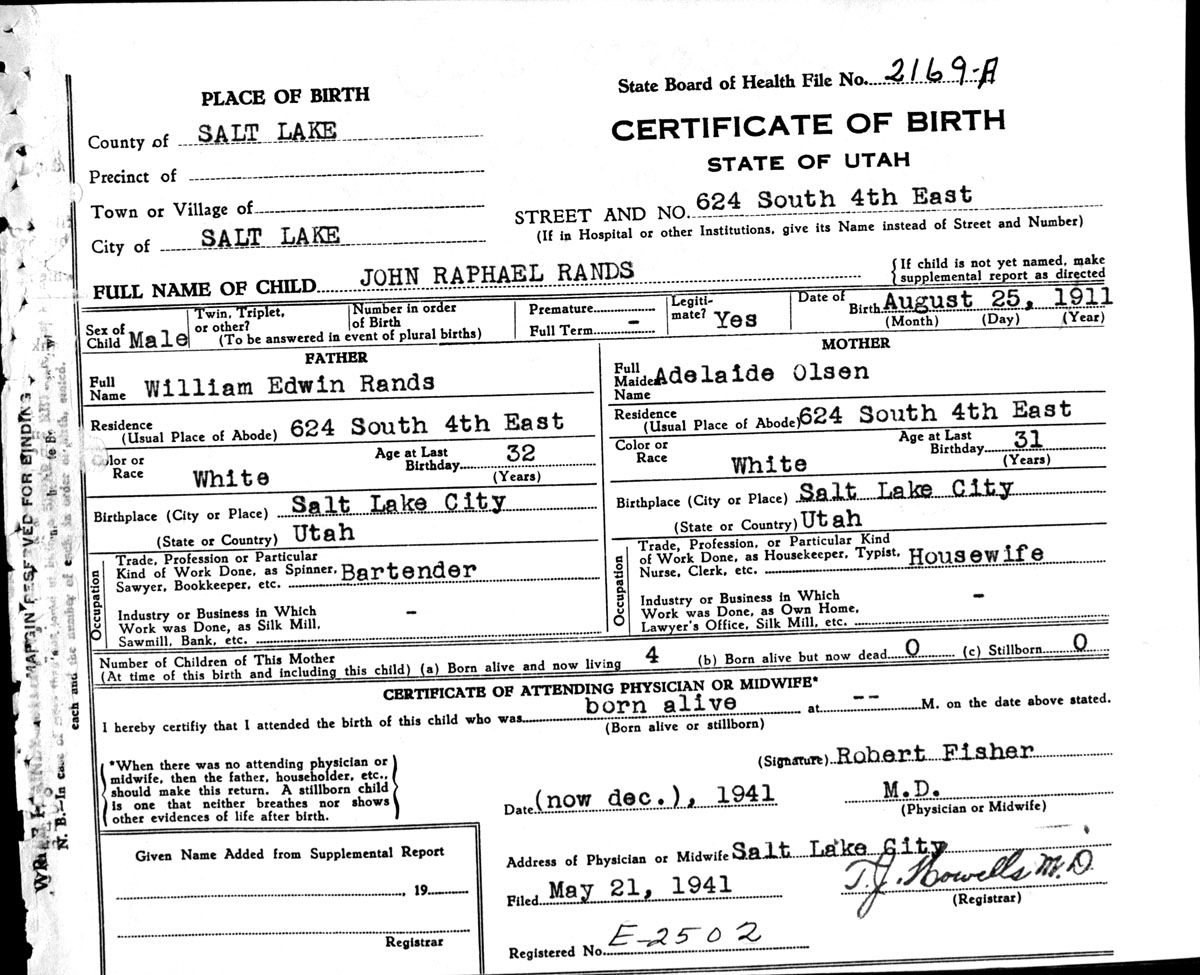 State Board of Health File No. 2169-A
PLACE OF BIRTH
CERTIFICATE OF BIRTH
STATE OF UTAH
County of SALT LAKE
Precinct of
Town or Village of
City of SALT LAKE
STREET AND NO. 624 South 4th East
(If in Hospital or other Institutions, give its Name instead of Street and Number)
FULL NAME OF CHILD JOHN RAPHAEL RANDS
{If child is not yet named, make
supplemental report as directed
Sex of
Child Male
Twin, Triplet,
or other?
Number in order
of Birth
(To be answered in event of plural births)
Premature
Full Term -
Legiti-
mate? Yes
Date of
Birth August 25, 1911
(Month) (Day) (Year)
FATHER
Full
Name William Edwin Rands
Residence
(Usual Place of Abode) 624 South 4th East
Color or
Race White
Age at Last
Birthday 32
(Years)
Birthplace (City or Place) Salt Lake City
(State or Country) Utah
Occupation
Trade, Profession or Particular
Kind of Work Done, as Spinner,
Sawyer, Bookkeeper, etc. Bartender
Industry or Business in Which
Work was Done, as Silk Mill,
Sawmill, Bank, etc. -
MOTHER
Full
Maiden
Name Adelaide Olsen
Residence
(Usual Place of Abode) 624 South 4th East
Color or
Race White
Age at Last
Birthday 31
(Years)
Birthplace (City or Place) Salt Lake City
(State or Country) Utah
Occupation
Trade, Profession, or Particular Kind
of Work Done, as Housekeeper, Typist,
Nurse, Clerk, etc. Housewife
Industry or Business in Which
Work was Done, as Own Home,
Lawyer's Office, Silk Mill, etc. -
Number of Children of This Mother
(At time of this birth and including this child) (a) Born alive and now living 4 (b) Born alive but now dead 0 (c) Stillborn 0
CERTIFICATE OF ATTENDING PHYSICIAN OR MIDWIFE*
I hereby certifiy that I attended the birth of this child who was born alive at -- M. on the date above stated.
(Born alive or stillborn)
*When there was no attending physician or
midwife, then the father, householder, etc.,
should make this return. A stillborn child
is one that neither breathes nor shows
other evidences of life after birth.
(Signature) Robert Fisher
Date (now dec.), 1941 M.D.
(Physician or Midwife)
Address of Physician or Midwife Salt Lake City
Filed May 21, 1941 T.J. Howells M.D.
(Registrar)
Registered No. E-2502
Given Name Added from Supplemental Report
, 19
Registrar
MARGIN RESERVED FOR BINDING
N. B.—In case of
each and the number of each, in order of birth, stated.